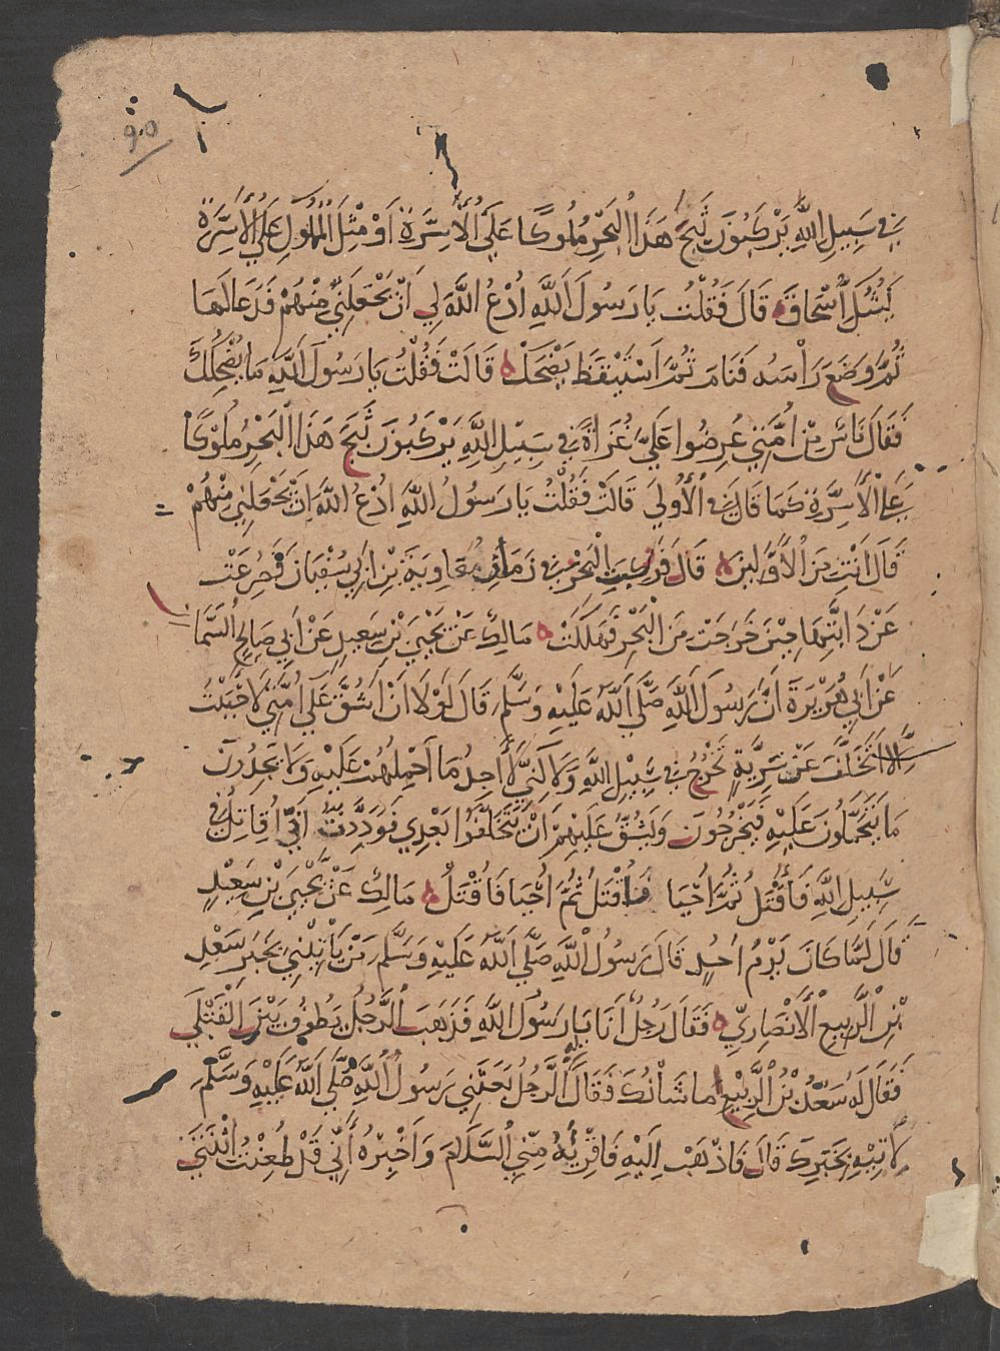 ٩٠٥
في سَبِيلِ اللَّهِ يَرْكَبُونَ ثَبَجَ هَذَا الْبَحْرِ مُلُوكًا عَلَى الْأَسِرَّةِ أَوْ مِثْلَ الْمُلُوكِ عَلَى الْأَسِرَّةِ
يَشُكُّ إِسْحَاقُ ه قَالَ فَقُلْتُ يَا رَسُولَ اللَّهِ ادْعُ اللَّهَ لِي أَنْ يَجْعَلَنِي مِنْهُمْ فَدَعَا لَهَا
ثُمَّ وَضَعَ رَأْسَهُ فَنَامَ ثُمَّ اسْتَيْقَظَ يَضْحَكُ ه قَالَتْ فَقُلْتُ يَا رَسُولَ اللَّهِ مَا يُضْحِكُكَ
فَقَالَ نَاسٌ مِنْ أُمَّتِي عُرِضُوا عَلَيَّ غُزَاةً فِي سَبِيلِ اللَّهِ يَرْكَبُونَ ثَبَجَ هَذَا الْبَحْرِ مُلُوكًا
عَلَى الْأَسِرَّةِ كَمَا قَالَ فِي الْأُولَى قَالَتْ فَقُلْتُ يَا رَسُولُ اللَّهِ ادْعُ اللَّهَ أَنْ يَجْعَلَنِي مِنْهُمْ
قَالَ أَنْتِ مِنَ الْأَوَّلِينَ ه قَالَ فَرَكِبَتِ الْبَحْرَ فِي زَمَانِ مُعَاوِيَةَ بْنِ أَبِي سُفْيَانَ فَصُرِعَتْ
عَنْ دَابَّتِهَا حِينَ خَرَجَتْ مِنَ الْبَحْرِ فَهَلَكَتْ ه مَالِكٌ عَنْ يَحْيَى بْنِ سَعِيدٍ عَنْ أَبِي صَالِحٍ السَّمَّا
عَنْ أَبِي هُرَيْرَةَ أَنَّ رَسُولَ اللَّهِ صَلَّى اللَّهُ عَلَيْهِ وَسَلَّمَ قَالَ لَوْلَا أَنْ أَشُقَّ عَلَى أُمَّتِي لَأَحْبَبْتُ
أَلَّا أَتَخَلَّفَ عَنْ سَرِيَّةٍ تَخْرُجُ فِي سَبِيلِ اللَّهِ وَلَكِنِّي لَا أَجِدُ مَا أَحْمِلُهُمْ عَلَيْهِ وَلَا يَجِدُونَ
مَا يَتَحَمَّلُونَ عَلَيْهِ فَيَخْرُجُونَ وَيَشُقُّ عَلَيْهِمْ أَنْ يَتَخَلَّفُوا بَعْدِي فَوَدِدْتُ أَنِّي أُقَاتِلُ فِي
سَبِيلِ اللَّهِ فَأُقْتَلُ ثُمَّ أُحْيَا فَأُقْتَلُ ثُمَّ أُحْيَا فَأُقْتَلُ ه مَالِكٌ عَنْ يَحْيَى بْنِ سَعِيدٍ
قَالَ لَمَّا كَانَ يَوْمُ أُحُدٍ قَالَ رَسُولُ اللَّهِ صَلَّى اللَّهُ عَلَيْهِ وَسَلَّمَ مَنْ يَأْتِينِي بِخَبَرِ سَعْدِ
بْنِ الرَّبِيعِ الْأَنْصَارِيِّ ه فَقَالَ رَجُلٌ أَنَا يَا رَسُولَ اللَّهِ فَذَهَبَ الرَّجُلُ يَطُوفُ بَيْنَ الْقَتْلَى
فَقَالَ لَهُ سَعْدُ بْنُ الرَّبِيعِ مَا شَأْنُكَ فَقَالَ الرَّجُلُ بَعَثَنِي رَسُولُ اللَّهِ صَلَّى اللَّهُ عَلَيْهِ وَسَلَّمَ
لِآتِيَهِ بِخَبَرِكَ قَالَ فَاذْهَبْ إِلَيْهِ فَاقْرِئْهُ مِنِّي السَّلَامَ وَأَخْبِرْهُ أَنِّي قَدْ طُعِنْتُ اثْنَتَيْ